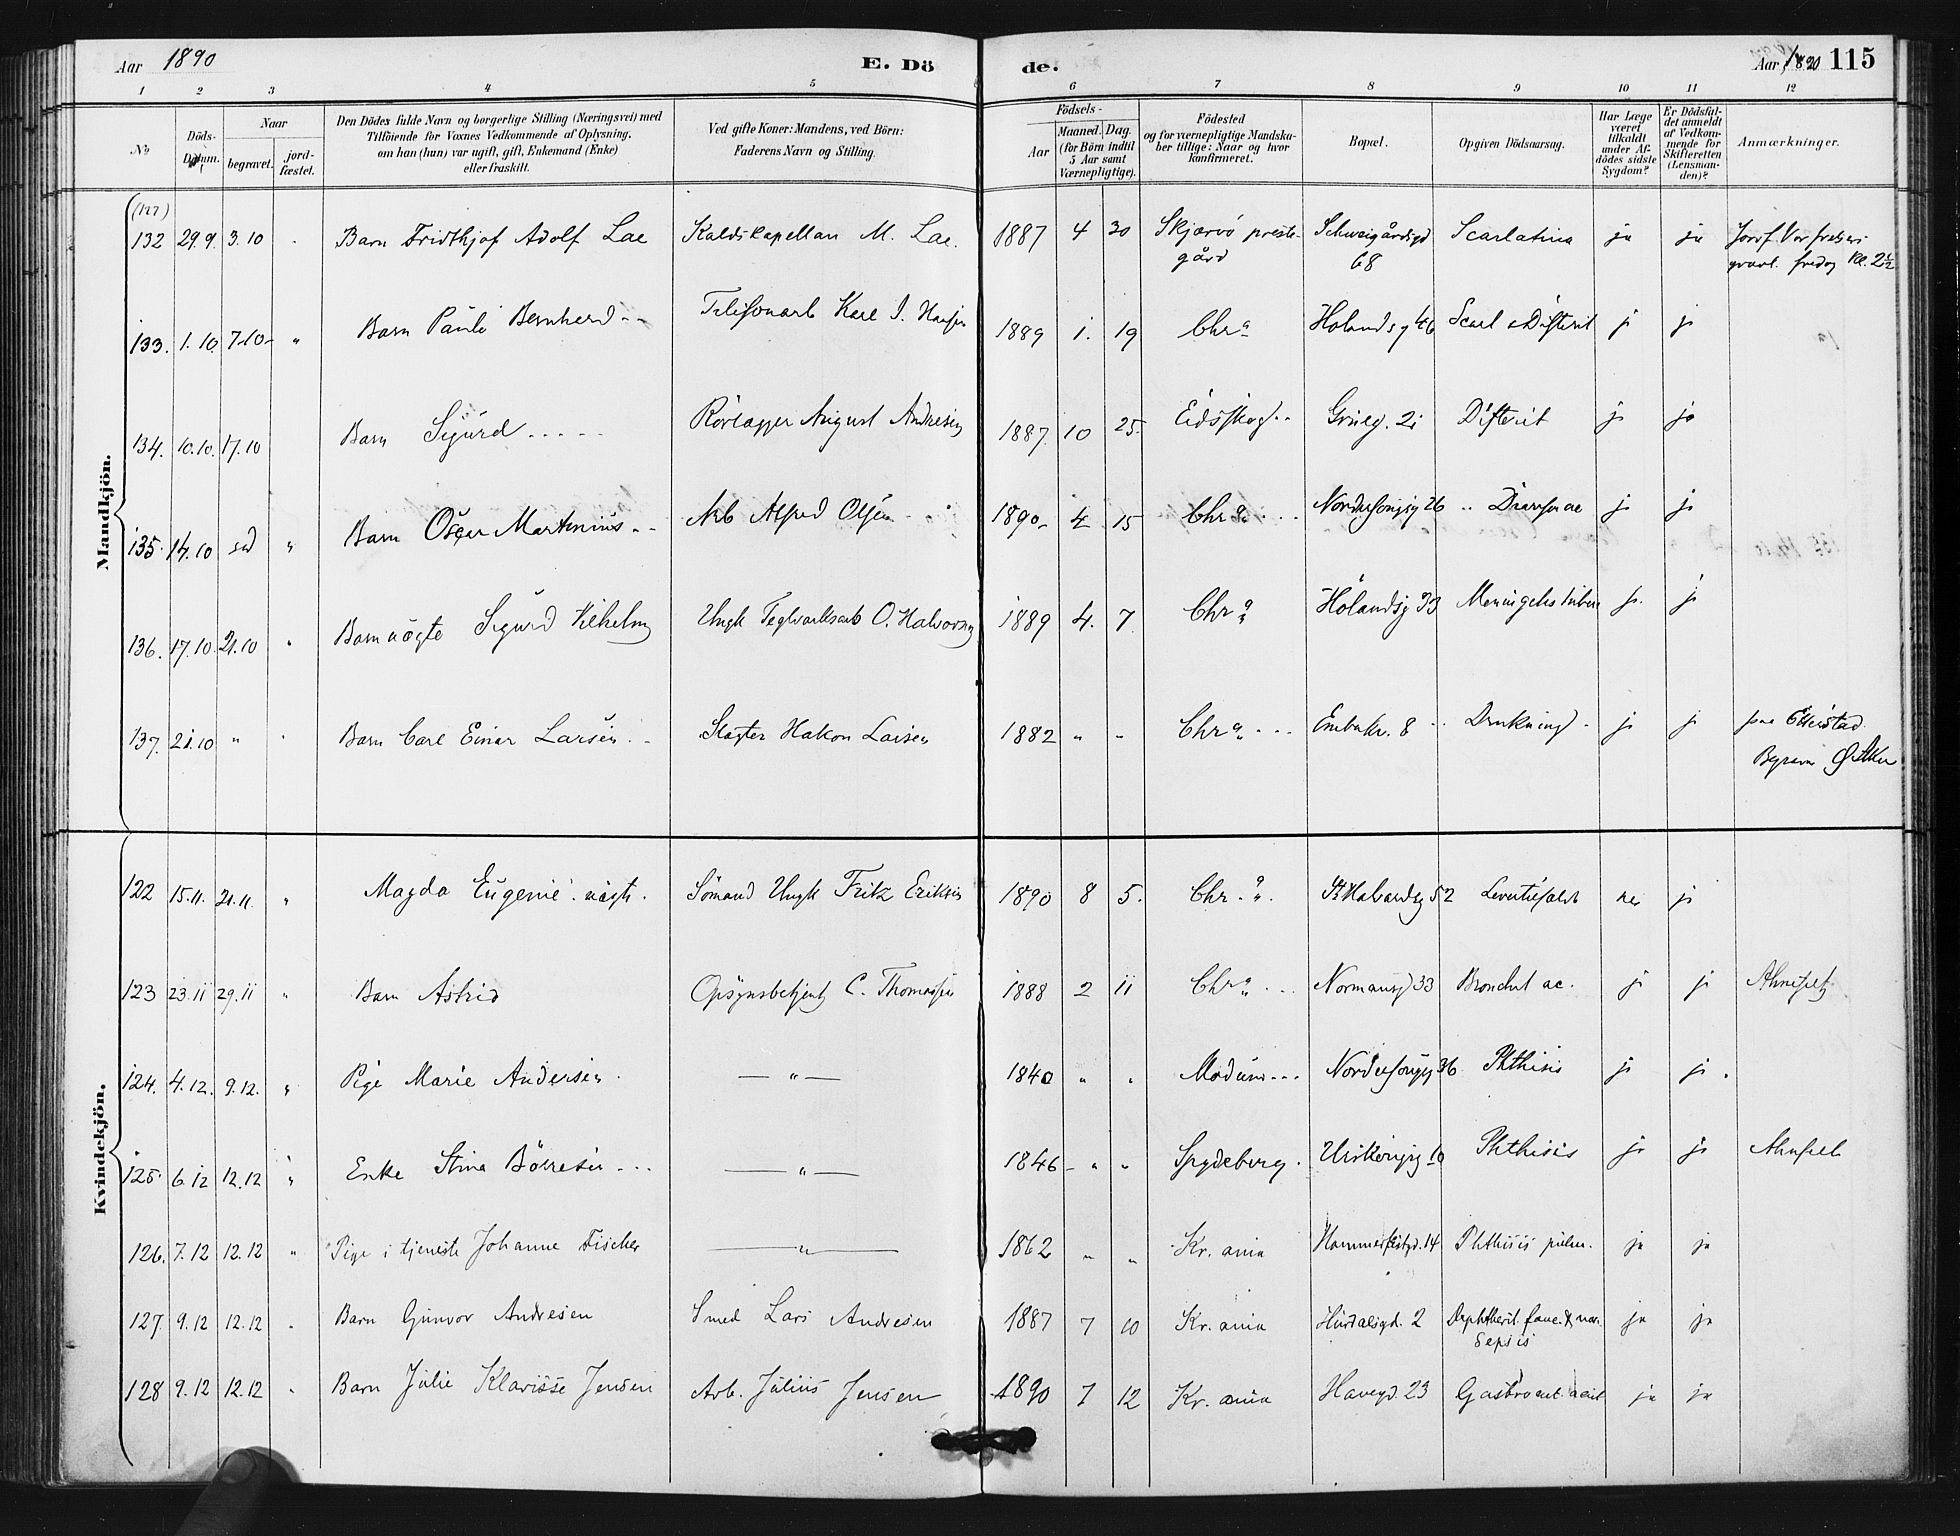 Aar 1890
E. Dö
de.
Aar 1890 115
1 2 3 4 5 6 7 8 9 10 11 12
No
Döds-
Datum.
Naar
begravet.
jord-
fæstet.
Den Dödes fulde Navn og borgerlige Stilling (Næringsvei) med
Tilföiende for Voxnes Vedkommende af Oplysning,
om han (hun) var ugift, gift, Enkemand (Enke)
eller fraskilt.
Ved gifte Koner: Mandens, ved Börn:
Faderens Navn og Stilling.
Födsels-
Aar
Maaned. Dag.
(for Börn indtil
5 Aar samt
Værnepligtige).
Födested
og for værnepligtige Mandska-
ber tillige: Naar og hvor
konfirmeret.
Bopæl.
Opgiven Dödsaarsag.
Har Læge
været
tilkaldt
under Af-
dödes sidste
Sygdom?
Er Dödsfal-
det anmeldt
af Vedkom-
mende for
Skifteretten
(Lensman-
den)?
Anmærkninger.
Mandkjön.
132 29.9. 3.10 Barn Fridthjof Adolf Lae Kaldskapellan M. Lae. 1887 4 30 Skjærvö preste- Schweigårdsgd Scarlatina ja ja
gård 68 fredag Kl. 2½
133. 1.10. 7.10 " Barn Pauli Bernherd Karl J. 1889 1. 19 Chra Holands g 46 Scarl & Difterit j j
134. 10.10. 17.10 Barn Sigurd Rörlægger August Andresen 1887. 10 25. Eidsskog Grüleg. 21 Difterit j ja
135. 14.10 " Barn Oscar Martinius Arb Alfred Olsen 1890 4 15 Chra 26 j j
136. 17.10. 21.10 Barn uægte Sigurd Vilhelm Ungk Teglværksarb O. Halvorsen 1889 4. 7. Chra Hölandsg 33 j. j
137. 21.10 " Barn Carl Einar Larsen Slagter Hakon Larsen 1882 " " Chra 8 Drukning j j paa Etterstad
Kvindekjön.
122 15.11. 21.11. " Magda Eugenie uægt. Sömand Ungk Fritz Eriksen 1890 8 5. Chr.a St Halvardsg 52 nei j
123 23.11 29.11 " Barn Astrid Opsynsbetjent C. Thomassen 1888 2 11 Chra Normansg 33 Bronchit ac. j j
124. 4.12. 9.12. " Pige Marie Andersen — " — 1840 " " Modum 36 Phthisis j j
125. 6.12 12.12 " Enke Stina Börresen — " — 1846 " " Spydeberg. 10 Phthisis j j
126. 7.12 12.12 " Pige i tjeneste Johanne Fischer — " — 1862 " " Kr.ania Hammerfestgd. 14 Phthisis pulm. ja ja
127. 9.12 12.12 Barn Gunvor Andresen Smed Lars Andresen 1887 7 10 Kr.ania Hurdalsgd. 2 ja ja
Sepsis
128 9.12 12.12 Barn Julie Klarisse Jensen Arb. Julius Jensen 1890 7 12 Kr.ania Havegd. 23 Gastroent. acut ja ja